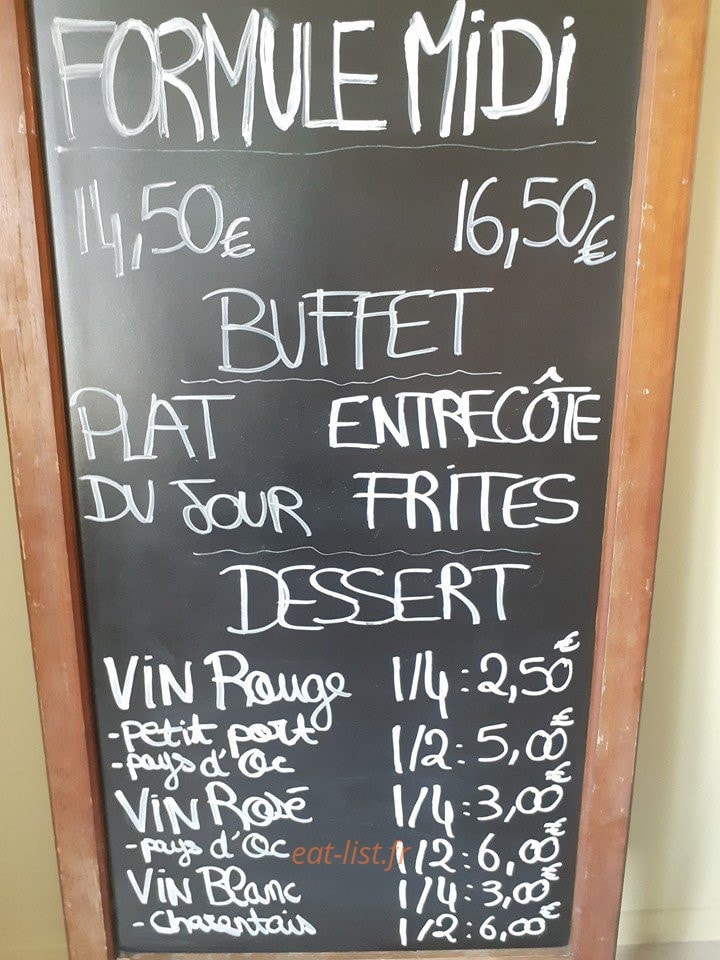 FORMULE MiDi
14,50€ 16,50€
BUFFET
PLAT ENTRECÔTE
DU JOUR FRITES
DESSERT
ViN Rouge 1/4 : 2,50€
- petit port
1/2 : 5,00€
- pays d'Oc
ViN Rosé 1/4 : 3,00€
- pays d'Oc 1/2 : 6,00€
eat-list.fr
ViN Blanc 1/4 : 3,00€
- charentais 1/2 : 6,00€